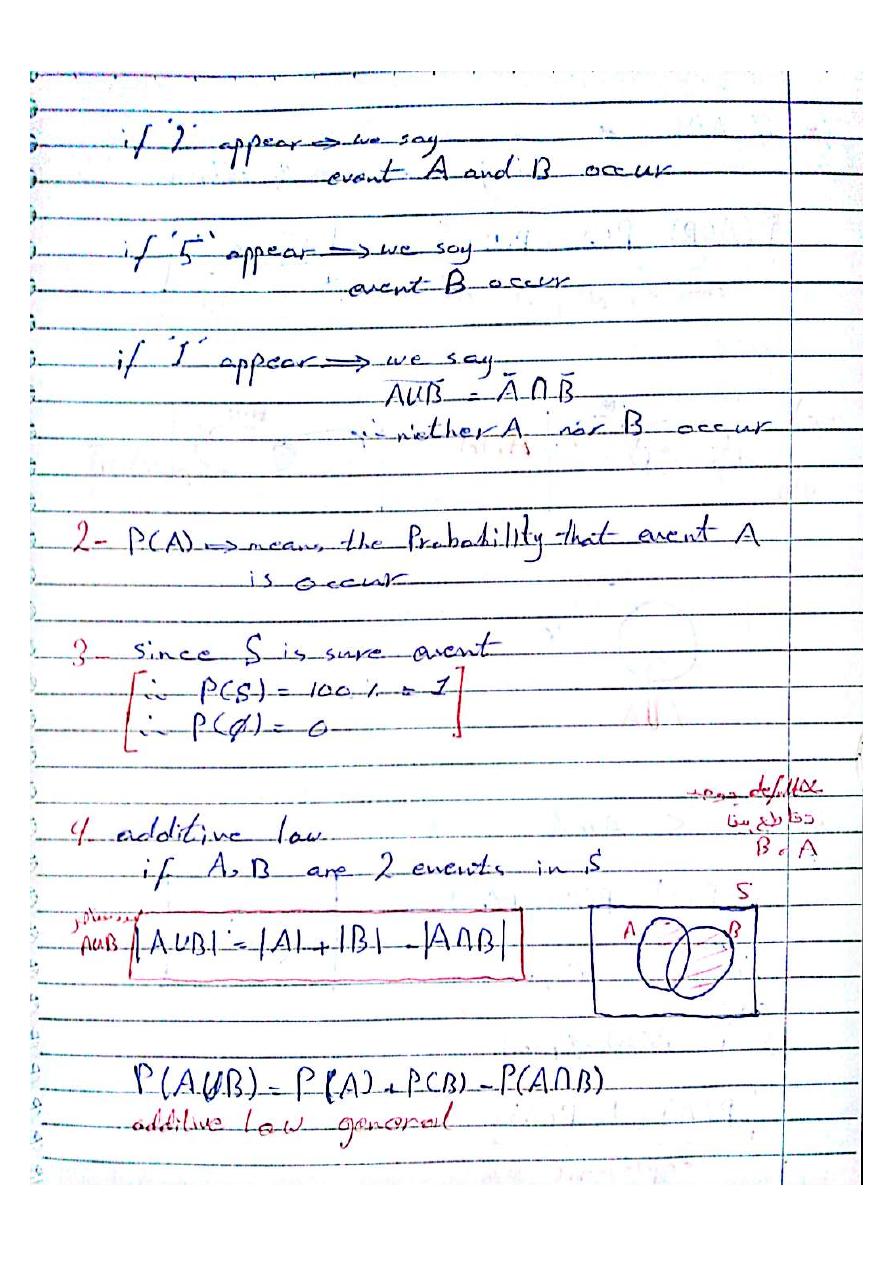 if "2" appear ⇒ we say
event A and B occur
if "5" appear ⇒ we say
event B occur
if "1" appear ⇒ we say
A̅U̅B̅ = A̅ ∩ B̅
∴ niether A nor B occur
2- P(A) ⇒ means the Probability that event A
is occur
3- since S is sure event
∴ P(S) = 100 % = 1
∴ P(∅) = 0
4- additive law
if A, B are 2 events in S
B, A
S
A B
AUB
|AUB| = |A| + |B| - |A∩B|
P(AUB) = P(A) + P(B) - P(A∩B)
additive law general